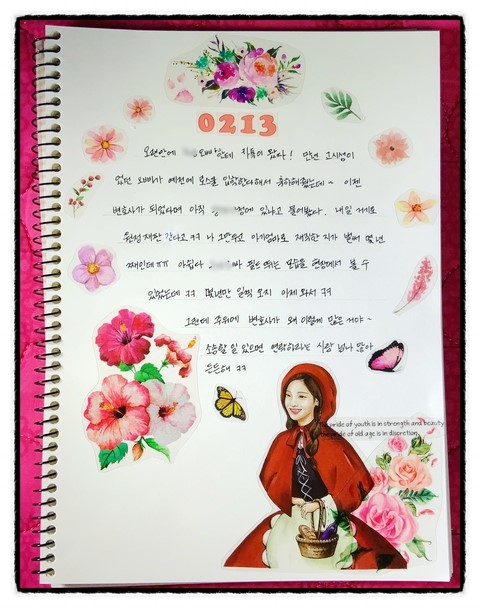 0213
오랜만에 오빠한테 카톡이 왔다! 만년 고시생이
었던 오빠가 예전에 로스쿨 입학한다해서 축하해줬는데~ 이젠
변호사가 되었다며 아직 에 있냐고 물어봤다. 내일 거기로
원정재판 간다고 ㅋㅋ 나 그만두고 아기엄마로 재직한 지가 벌써 몇년
째인데 ㅠㅠ 아쉽다 빠 필드 뛰는 모습을 현장에서 볼 수
있었는데 ㅋㅋ 몇년만 일찍 오지 이제 와서 ㅋㅋ
그런데 주위에 변호사가 왜 이렇게 많은 거야~
소송할 일 있으면 연락하라는 사람 넘나 많아
든든해 ㅋㅋ
The pride of youth is in strength and beauty
the pride of old age is in discretion